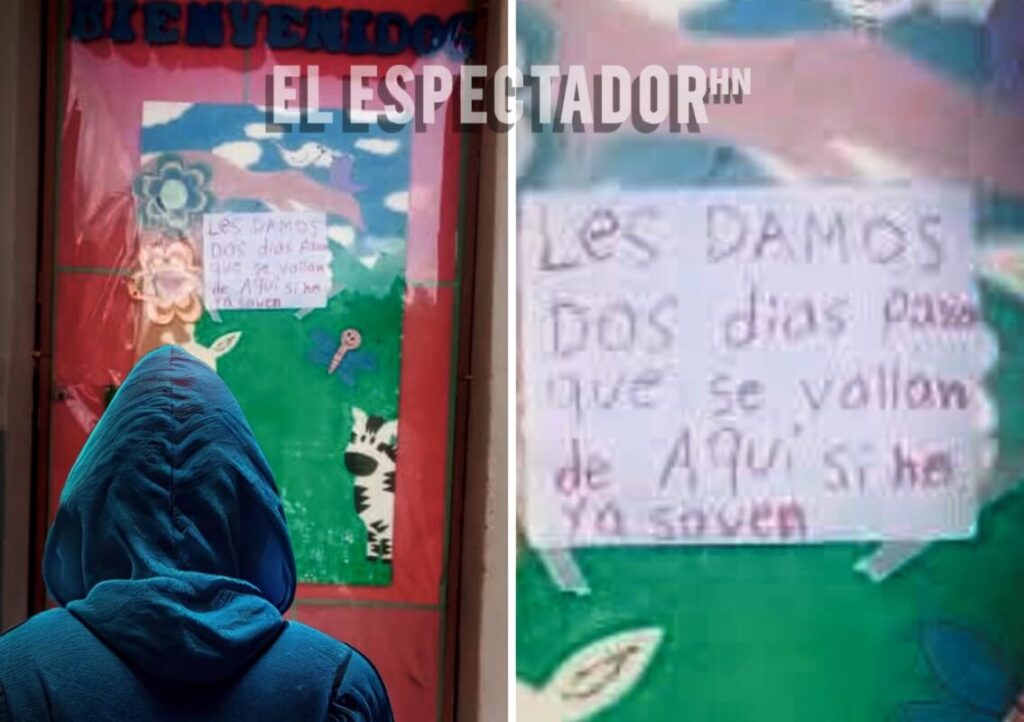 BIENVENIDOS
EL ESPECTADOR HN
Les DAMOS
DOS dias para
que se vallan
de AQUi si he
Ya saven
Les DAMOS
DOS dias para
que se vallan
de AQUi si he
Ya saven